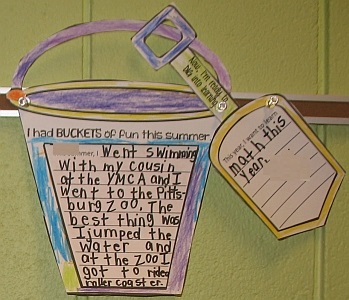 I had BUCKETS of fun this summer
mmer, I Went swimming
With my cousin
at the YMCA and I
went to the Pitts-
burg Zoo. The
best thing was
I jumped the
water and
at the zoo I
got to rided
roller coaster.
Now, I'm ready to
DIG into learning
This year, I want to learn
math this
year.